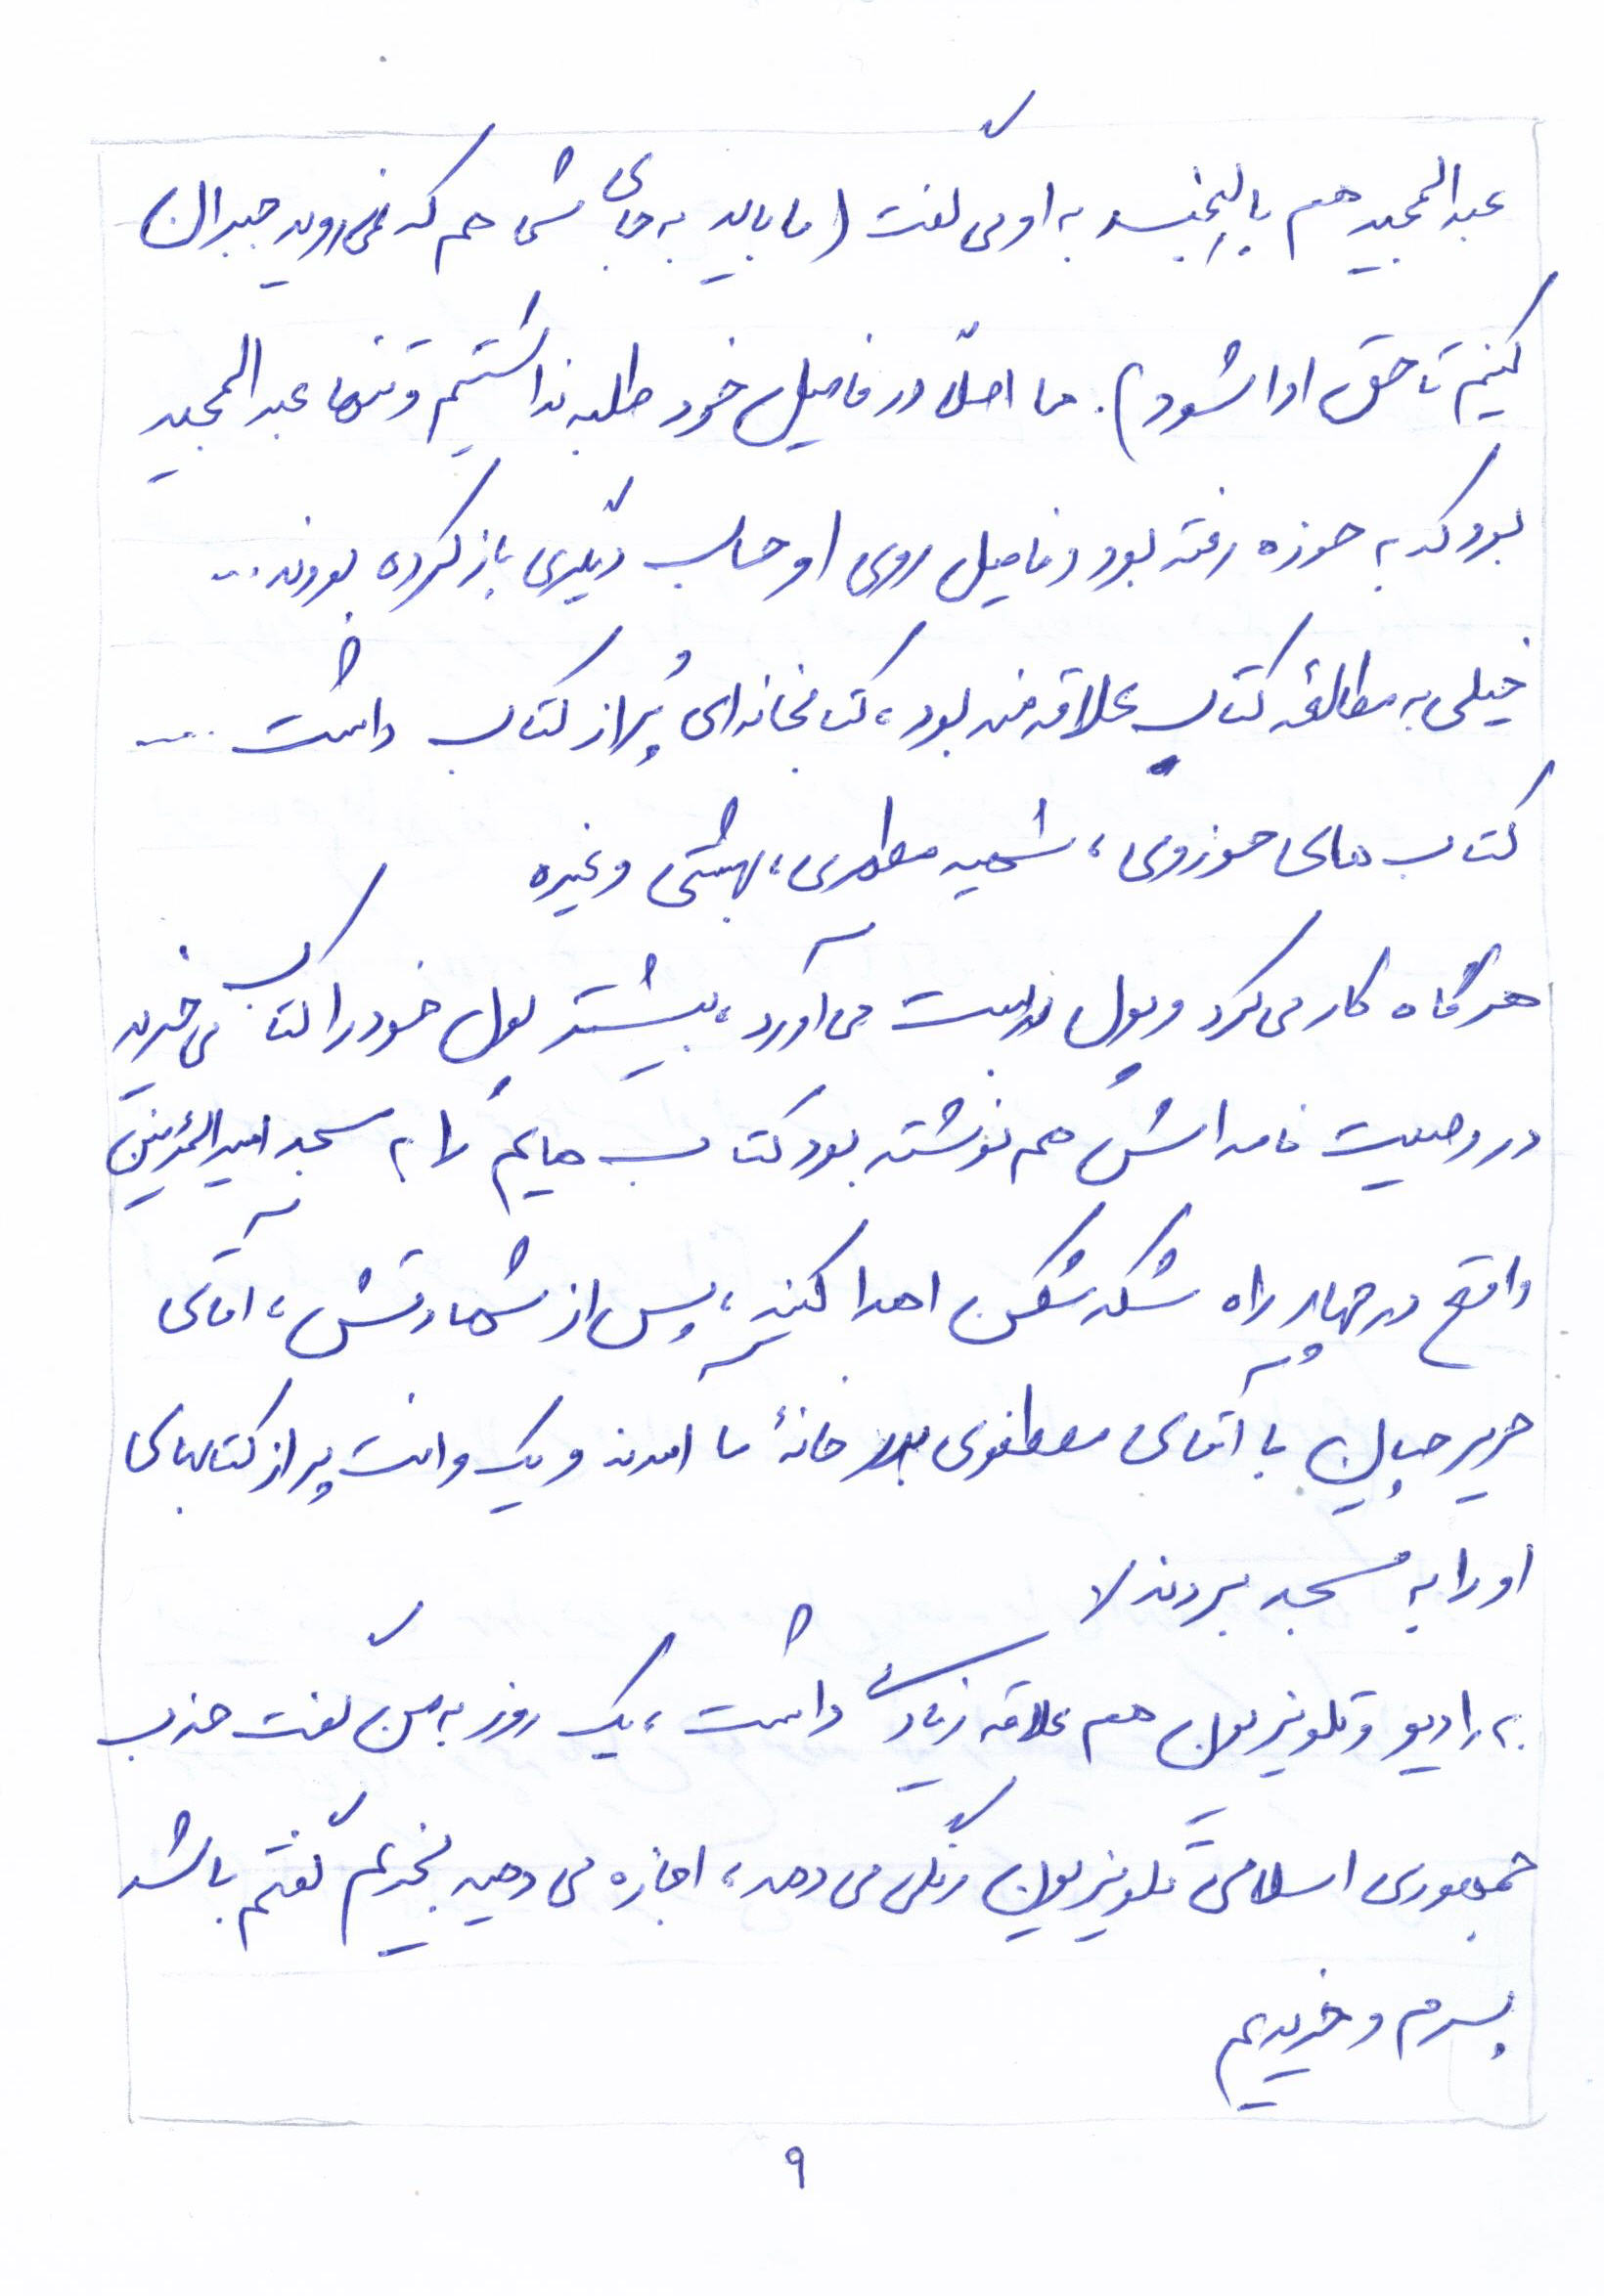 عبدالمجید هم با لبخند به او می گفت (ما باید به جای شما هم که نمی روید جبران
کنیم تا حق ادا شود). ما اصلاً در فامیل خود طلبه نداشتیم و تنها عبدالمجید
بود که به حوزه رفته بود و فامیل روی او حساب دیگری باز کرده بودند...
خیلی به مطالعه کتاب علاقه مند بود، کتابخانه ای پُر از کتاب داشت ....
کتاب های حوزوی، شهید مطهری، بهشتی و غیره
هرگاه کار می کرد و پول بدست می آورد، بیشتر پول خود را کتاب می خرید
در وصیت نامه اش هم نوشته بود کتاب هایم را به مسجد امیرالمؤمنین
واقع در چهار راه شکرشکن اهدا کنید، پس از شهادتش، آقای
حریرچیان با آقای مصطفوی به خانهٔ ما آمدند و یک وانت پر از کتابهای
او را به مسجد بردند
به رادیو و تلویزیون هم علاقه زیادی داشت، یک روز به من گفت حزب
جمهوری اسلامی تلویزیون رنگی می دهد، اجازه می دهید بخریم گفتم باشد
پسرم و خریدیم
۹